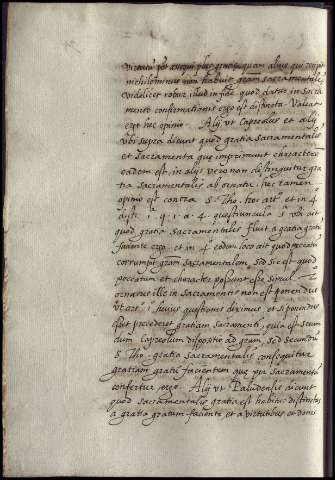 nihilominus non habuit gram sacramentale
videlicet robur illud in fide quod datur in sacra
mento confirmationis ergo est distincta. Valeat
ergo hec opinio. Alij vt Capreolus et alij
vbi supra dicunt quod gratia sacramentalis
et sacramenta que imprimunt characterē
eadem est in alijs vero non distinguitur gra
tia sacramentalis ab ornatu. hec tamen
opinio est contra s. Tho. 3 art° et in 4
dist. 1. q. 1. a. 4. questiuncula 5 vbi ait
quod gratia sacramentalis fluit a gratia gratū
faciente ergo. et in 4 eodem loco ait quod peccatū
corrumpit gram sacramentalem sed sic est quod
peccatum et character possunt esse simul.
ornatus ille in sacramentis non est ponendus
vt art. 1 huius questionis diximus et si ponendus
esset precederet gratiam sacramenti, quia est secun
dum Capreolum dispositio ad gram. sed secundū
s. Tho. gratia sacramentalis consequitur
gratiam gratū facientem que per sacramenta
confertur ergo. Alij vt Paludensis dicunt
quod sacramentalis gratia est habitus distinctus
a gratia gratum faciente et a virtutibus et donis